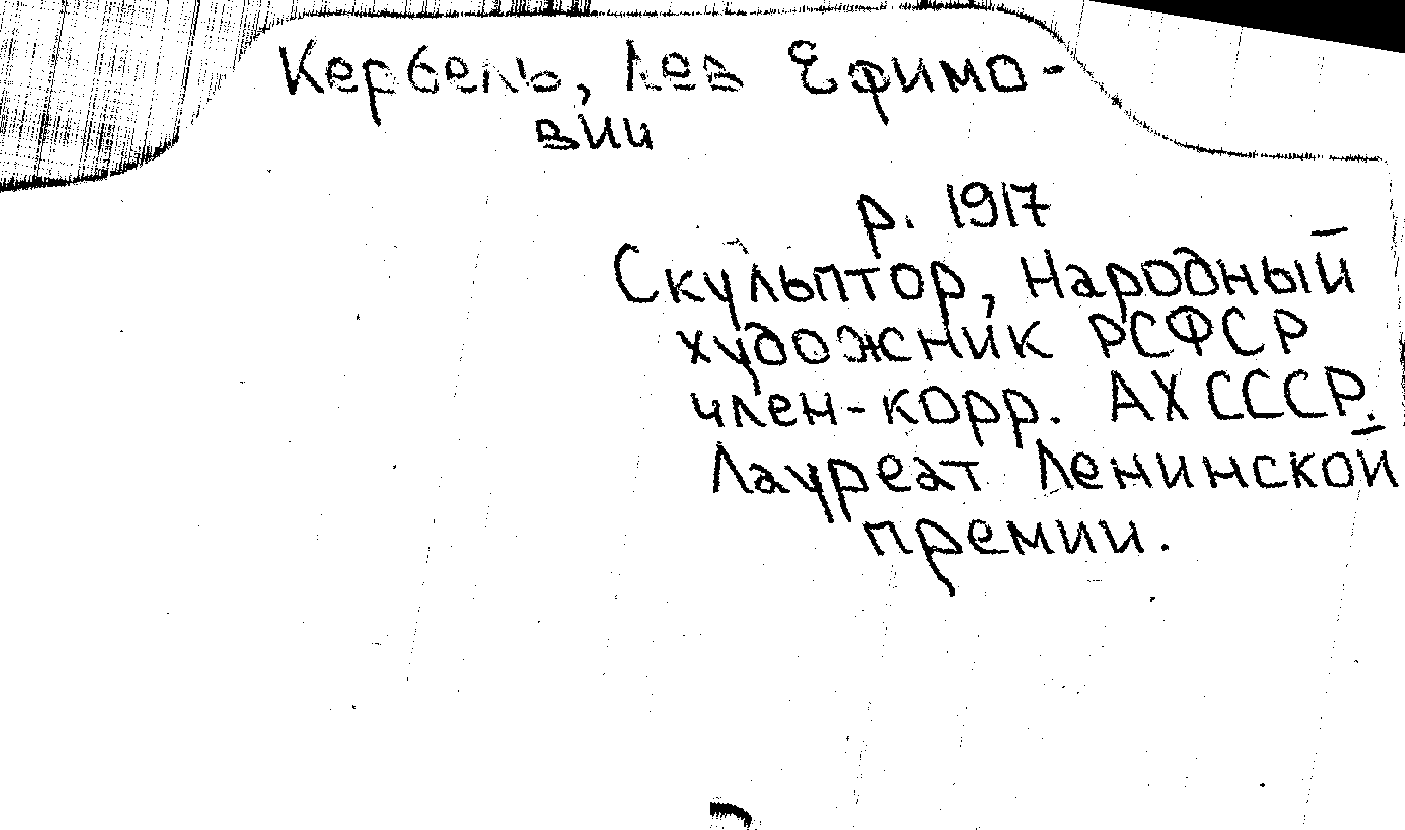 Кербель, Лев Ефимо-
вич
р. 1917
Скульптор, Народный
художник РСФСР
член-корр. АХ СССР.
Лауреат Ленинской
премии.